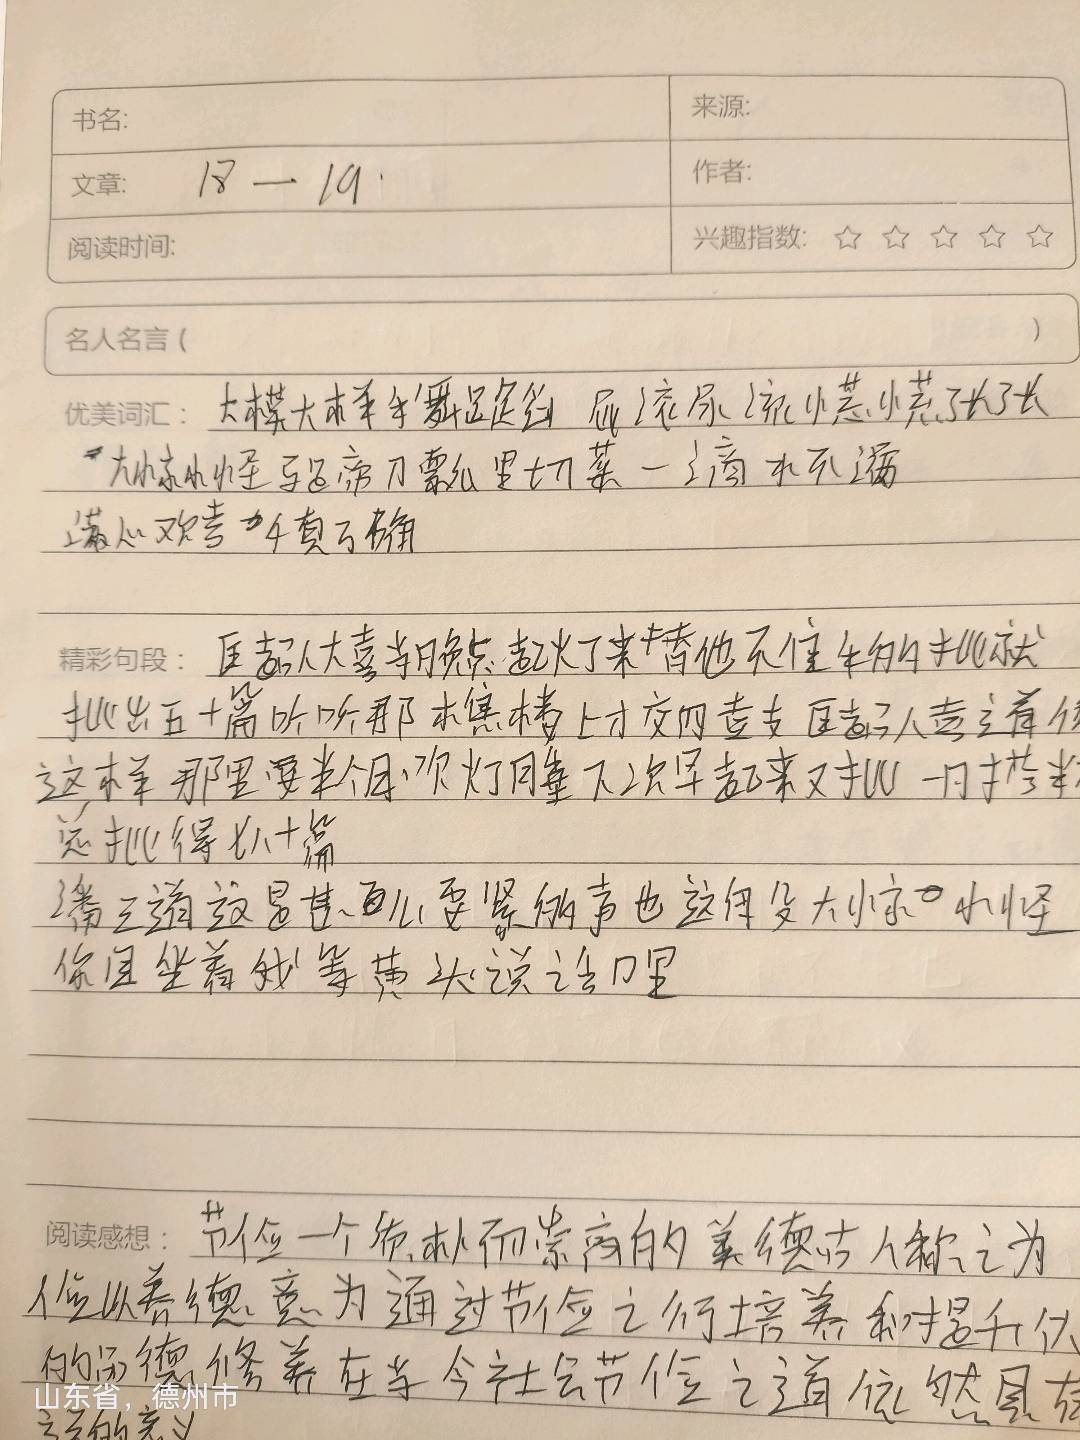 书名:
来源:
文章: 18—19.
作者:
阅读时间:
兴趣指数: ☆ ☆ ☆ ☆ ☆
名人名言 ( )
优美词汇: 大模大样手舞足蹈 屁滚尿流慌慌张张
大惊小怪 刀瓢里切菜 一滴水不漏
满心欢喜 千真万确
精彩句段: 匡超人大喜当晚点起灯来替他不住手的批就
批出五十篇听听那樵楼上才交四鼓匡超人喜道像
这样那里要半个月吹灯睡下次早起来又批一日搭半夜
总批得七八十篇
潘三道这是甚么要紧的事也这般大惊小怪
你且坐着我等黄头说话哩
阅读感想: 节俭一个质朴而崇高的美德古人称之为
俭以养德意为通过节俭之行培养和提升
的品德修养在当今社会节俭之道依然具有
的意义
山东省，德州市